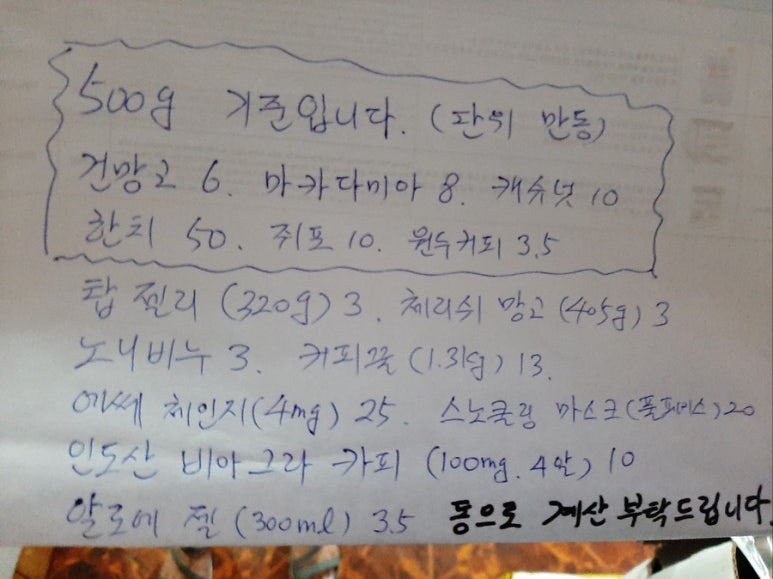 500g 기준입니다. (단위 만동)
건망고 6. 마카다미아 8. 캐슈넛 10
한치 50. 쥐포 10. 원두커피 3.5
탑 젤리 (320g) 3. 체리쉬 망고 (405g) 3
노니비누 3. 커피꿀 (1.3kg) 13.
에쎄 체인지(4mg) 25. 스노쿨링 마스크(풀페이스) 20
인도산 비아그라 카피 (100mg. 4알) 10
알로에 젤 (300ml) 3.5 동으로 계산 부탁드립니다.